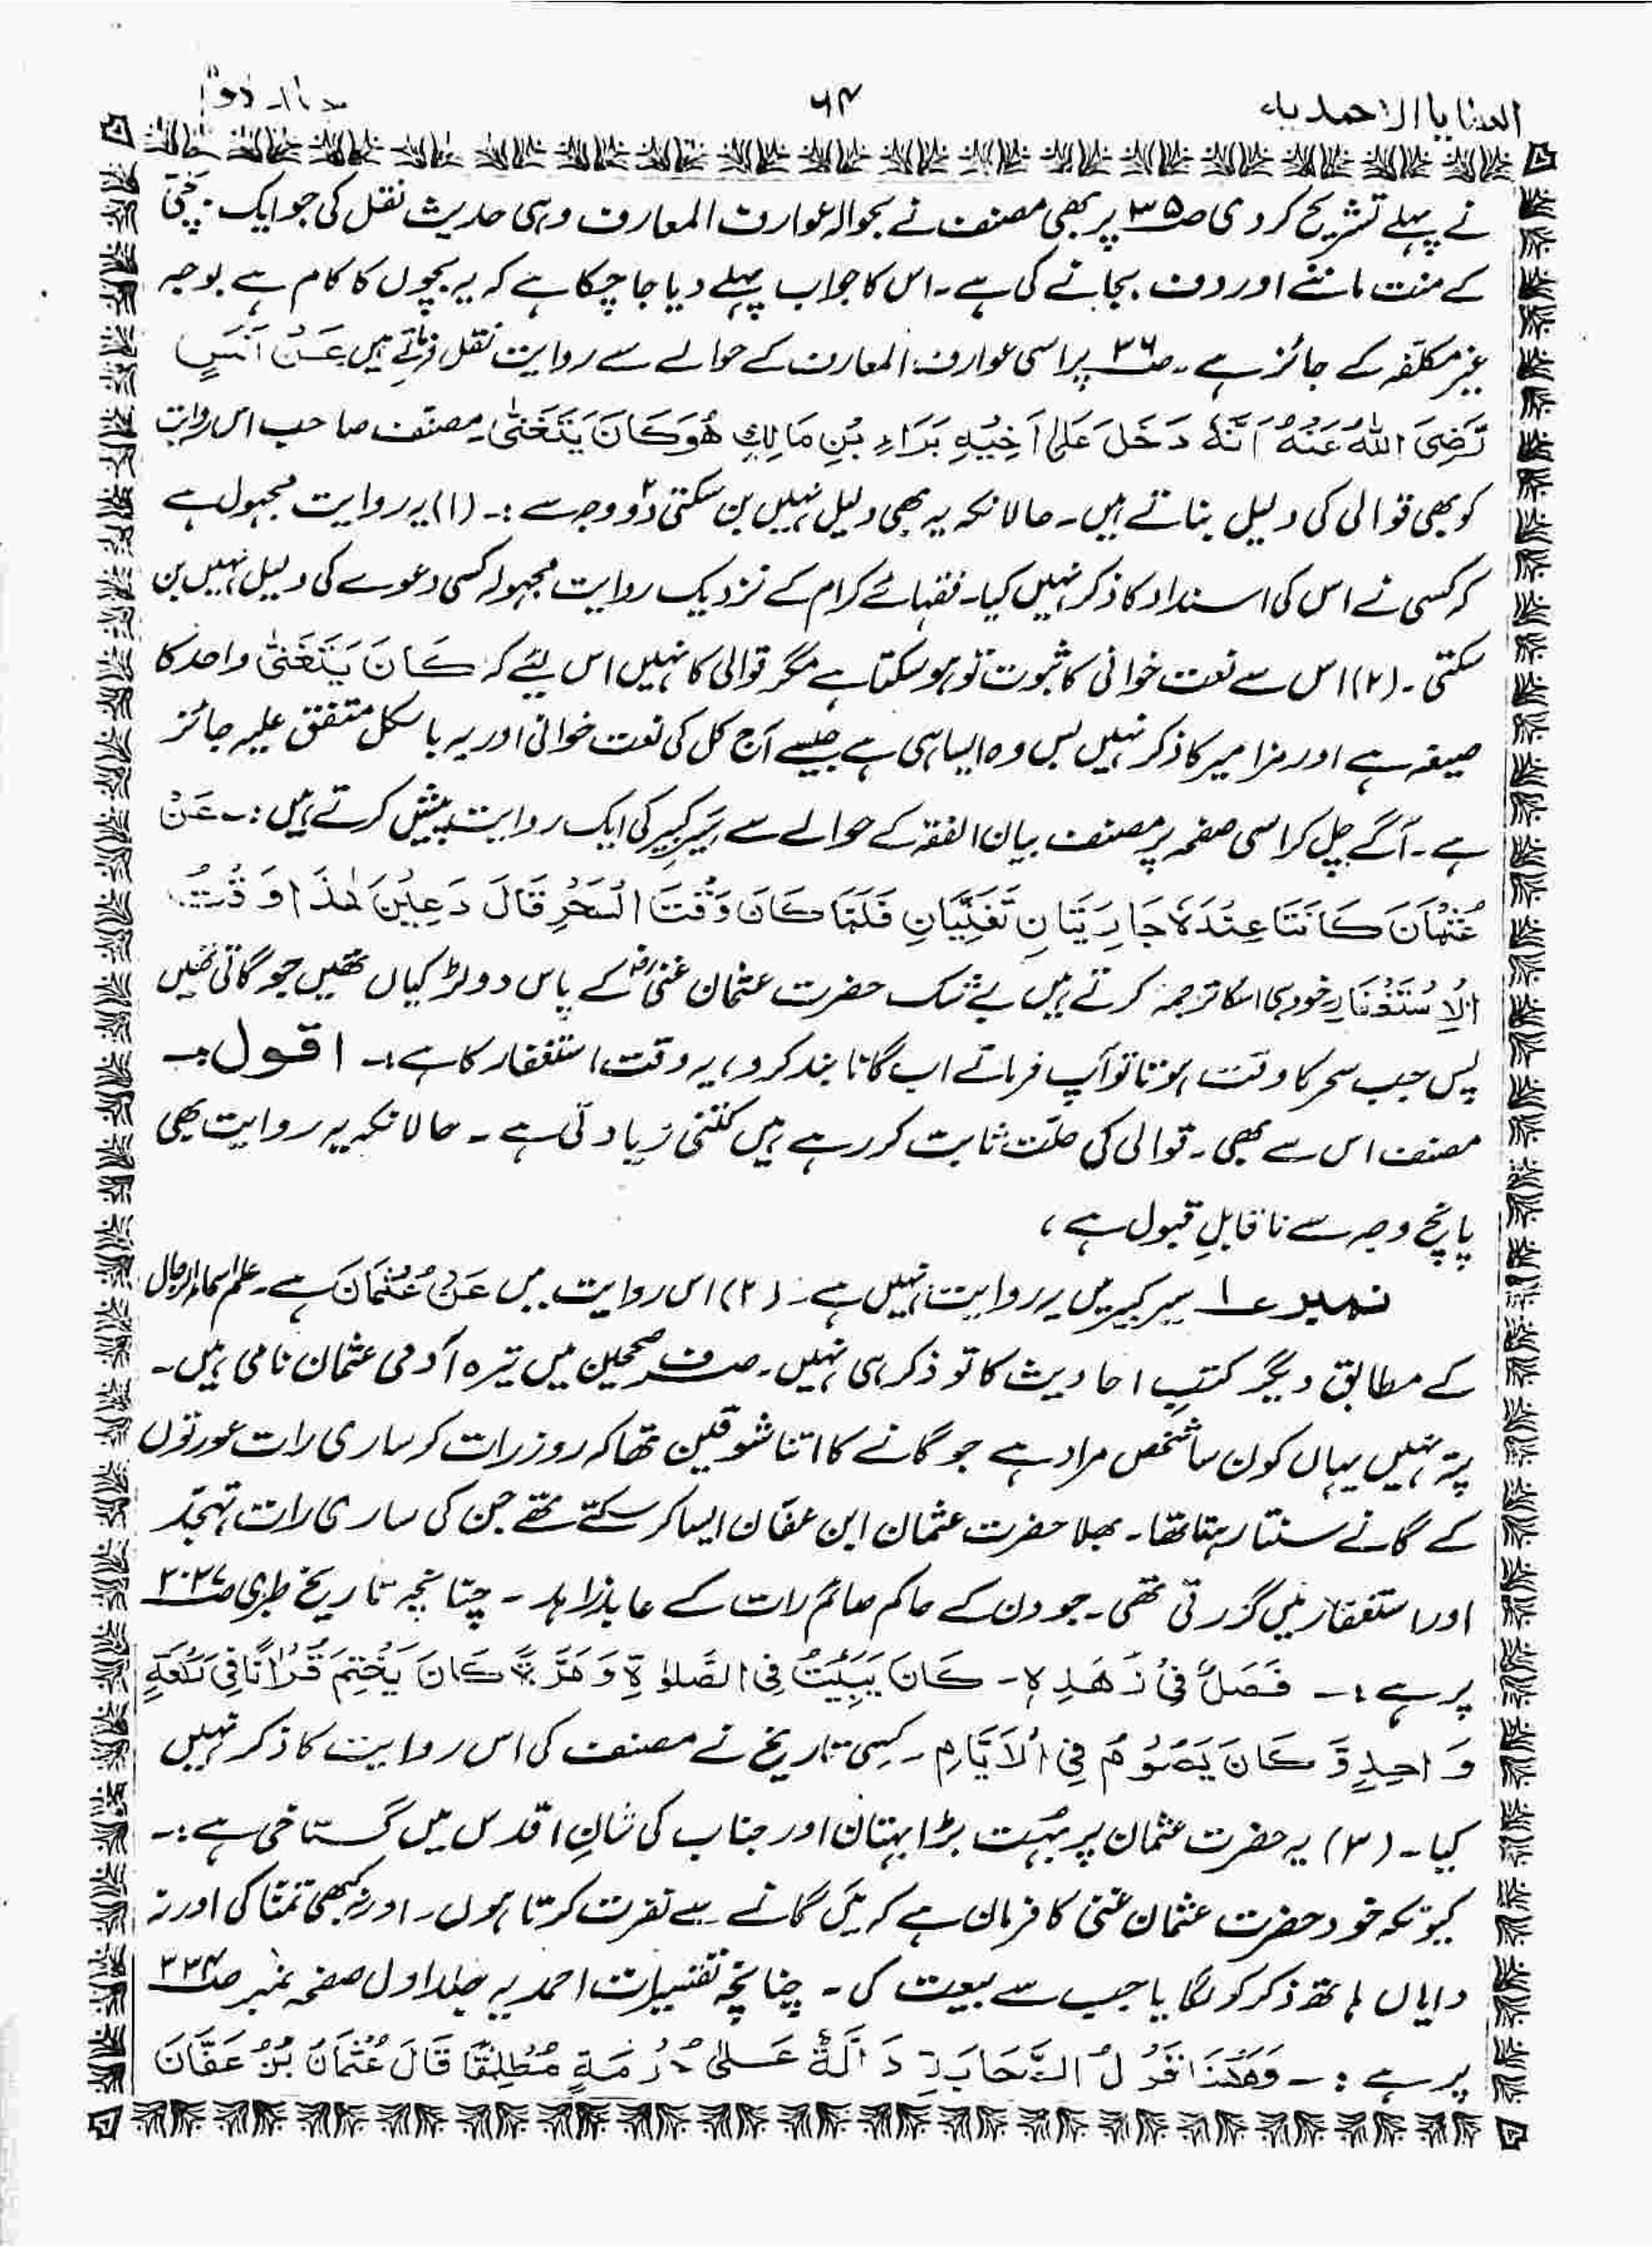 العطایا الاحمدیہ
۶۴
جلد دوم
نے پہلے تشریح کر دی صـ۳۵ پر بھی مصنف نے بحوالہ عوارف المعارف وہی حدیث نقل کی جو ایک بچّی
کے منت ماننے اور دف بجانے کی ہے۔ اس کا جواب پہلے دیا جا چکا ہے کہ یہ بچوں کا کام ہے بوجہ
غیر مکلّفہ کے جائز ہے۔ صـ۳۶ پر اسی عوارف المعارف کے حوالے سے روایت نقل فرماتے ہیں عَنْ اَنَسٍ
رَّضِیَ اللّٰہُ عَنْہُ اَنَّہٗ دَخَلَ عَلیٰ اَخِیْہِ بَرَاءِ بْنِ مَالِكِ ھُوَ کَانَ یَتَغَنّٰی۔ مصنّف صاحب اس روایت
کو بھی قوالی کی دلیل بناتے ہیں۔ حالانکہ یہ بھی دلیل نہیں بن سکتی دو۲ وجہ سے :۔ (۱) یہ روایت مجہول ہے
کہ کسی نے اس کی اسناد کا ذکر نہیں کیا۔ فقہائے کرام کے نزدیک روایت مجہولہ کسی دعوے کی دلیل نہیں بن
سکتی۔ (۲) اس سے نعت خوانی کا ثبوت تو ہو سکتا ہے مگر قوالی کا نہیں اس لئے کہ کَانَ یَتَغَنّٰی واحد کا
صیغہ ہے اور مزامیر کا ذکر نہیں بس وہ ایسا ہی ہے جیسے آج کل کی نعت خوانی اور یہ بالکل متفق علیہ جائز
ہے۔ آگے چل کر اسی صفحہ پر مصنف بیان الفقہ کے حوالے سے سِیَر کبیر کی ایک روایت پیش کرتے ہیں :۔ عَنْ
عُثْمَانَ کَانَتَا عِنْدَہٗ جَارِیَتَانِ تَغَنِّیَانِ فَلَمَّا کَانَ وَقْتَ السَّحَرِ قَالَ دَعِیْنَ ھٰذَا وَقْتُ
الْاِسْتَغْفَارِ خود ہی اسکا ترجمہ کرتے ہیں بے شک حضرت عثمان غنیؓ کے پاس دو لڑکیاں تھیں جو گاتی تھیں
پس جب سحر کا وقت ہوتا تو آپ فرماتے اب گانا بند کرو، یہ وقت استغفار کا ہے :۔ اقول :۔
مصنف اس سے بھی۔ قوالی کی حلّت ثابت کر رہے ہیں کتنی زیادتی ہے۔ حالانکہ یہ روایت بھی
پانچ وجہ سے ناقابلِ قبول ہے،
نمبر ۱ سیر کبیر میں یہ روایت نہیں ہے :۔ (۲) اس روایت میں عَنْ عُثْمَانَ ہے۔ علم اسماء الرجال
کے مطابق دیگر کتبِ احادیث کا تو ذکر ہی نہیں۔ صرف صحیحین میں تیرہ آدمی عثمان نامی ہیں۔
پتہ نہیں یہاں کون سا شخص مراد ہے جو گانے کا اتنا شوقین تھا کہ روز رات کر ساری رات عورتوں
کے گانے سنتا رہتا تھا۔ بھلا حضرت عثمان ابن عفّان ایسا کر سکتے تھے جن کی ساری رات تہجّد
اور استغفار میں گزرتی تھی۔ جو دن کے حاکم صائم رات کے عابد زاہد۔ چنانچہ تاریخ طبری صـ۲۰۲۷
پر ہے :۔ فَصَلٌ فِیْ زُھَدِہٖ۔ کَانَ یَبِیْتُ فِی الصَّلوٰۃِ وَ مَرَّۃً کَانَ یَخْتِمَ قُرْاٰنًا فِیْ رَکْعَۃٍ
وَاحِدٍ وَّ کَانَ یَصُوْمُ فِی الْاَیَّامِ۔ کسی تاریخ نے مصنف کی اس روایت کا ذکر نہیں
کیا۔ (۳) یہ حضرت عثمان پر بہت بڑا بہتان اور جناب کی شانِ اقدس میں گستاخی ہے :۔
کیونکہ خود حضرت عثمان غنی کا فرمان ہے کہ میں گانے سے نفرت کرتا ہوں۔ اور نہ کبھی تمنّا کی اور نہ
دایاں ہاتھ ذکر کو لگایا جب سے بیعت کی۔ چنانچہ تفسیرات احمدیہ جلد اول صفحہ نمبر صـ۳۳۴
پر ہے :۔ وَھٰکَذَا قَوْلُ الصَّحَابَۃِ دَالَّۃٌ عَلیٰ حُرْمَۃٍ مُطْلِقًا قَالَ عُثْمَانُ بْنُ عَفَّانَ